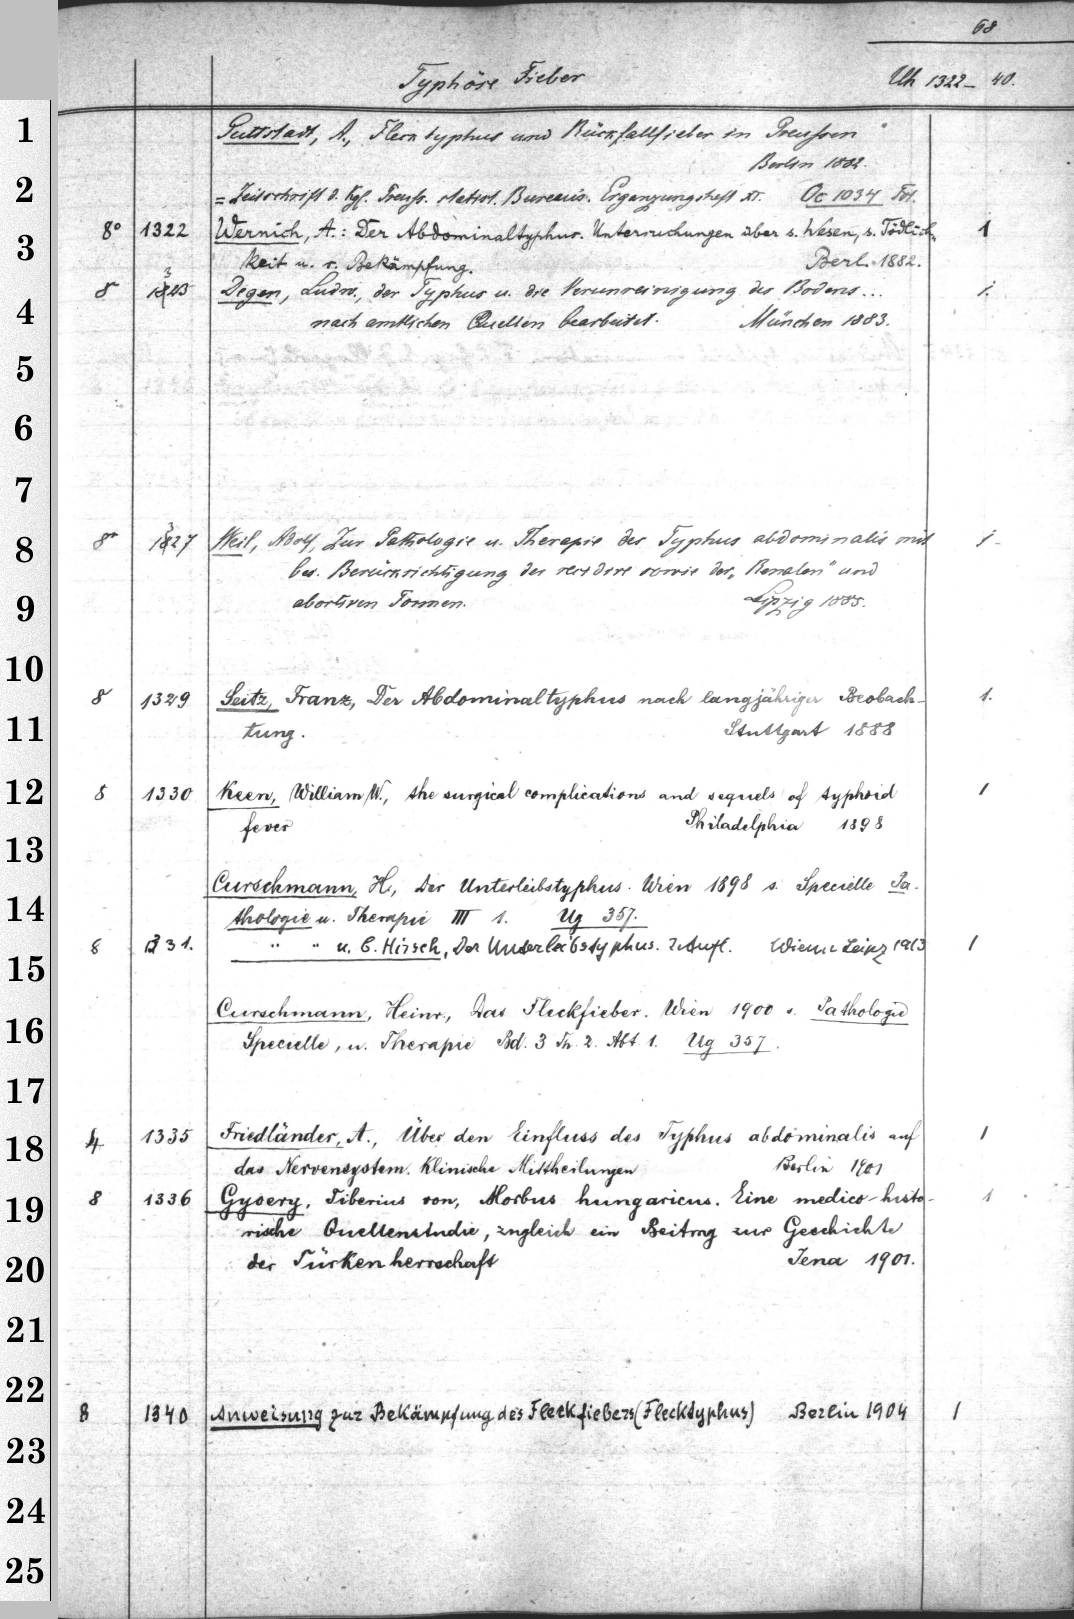 68
Typhöse Fieber Uh 1322 – 40.
1
Guttstadt, A., Flecktyphus und Rückfallfieber in Preussen
Berlin 1882.
2
= Zeitschrift d. Kgl. Preuss. statist. Bureaus. Ergänzungsheft XI. Oc 1034 Fol.
3
8° 1322 Wernich, A.: Der Abdominaltyphus. Untersuchungen über s. Wesen, s. Tödlich- 1
keit u. s. Bekämpfung. Berl. 1882.
4
8 1323 Degen, Ludw., der Typhus u. die Verunreinigung des Bodens ... 1.
nach amtlichen Quellen bearbeitet. München 1883.
5
6
7
8
8° 1327 Weil, Adolf, Zur Pathologie u. Therapie des Typhus abdominalis mit 1
bes. Berücksichtigung des recidivs sowie der „Renalen" und
9
abortiven Formen. Leipzig 1885.
10
8 1329 Seitz, Franz, Der Abdominaltyphus nach langjähriger Beobach- 1.
11
tung. Stuttgart 1888
12
8 1330 Keen, William W., the surgical complications and sequels of typhoid 1
fever Philadelphia 1898
13
Curschmann, H., Der Unterleibstyphus. Wien 1898 s. Specielle Pa-
14
thologie u. Therapie III 1. Ug 357.
8 1331. " " u. C. Hirsch, Der Unterleibstyphus. 2 Aufl. Wien u Leipz 1913 1
15
Curschmann, Heinr., Das Fleckfieber. Wien 1900 s. Pathologie
16
Specielle, u. Therapie Bd. 3 Th. 2. Abt 1. Ug 357.
17
18
4 1335 Friedländer, A., Über den Einfluss des Typhus abdominalis auf 1
das Nervensystem. Klinische Mittheilungen Berlin 1901
19
8 1336 Gyoery, Tiberius von, Morbus hungaricus. Eine medico-histo- 1
rische Quellenstudie, zugleich ein Beitrag zur Geschichte
20
der Türkenherrschaft Jena 1901.
21
22
8 1340 Anweisung zur Bekämpfung des Fleckfiebers (Flecktyphus) Berlin 1904 1
23
24
25